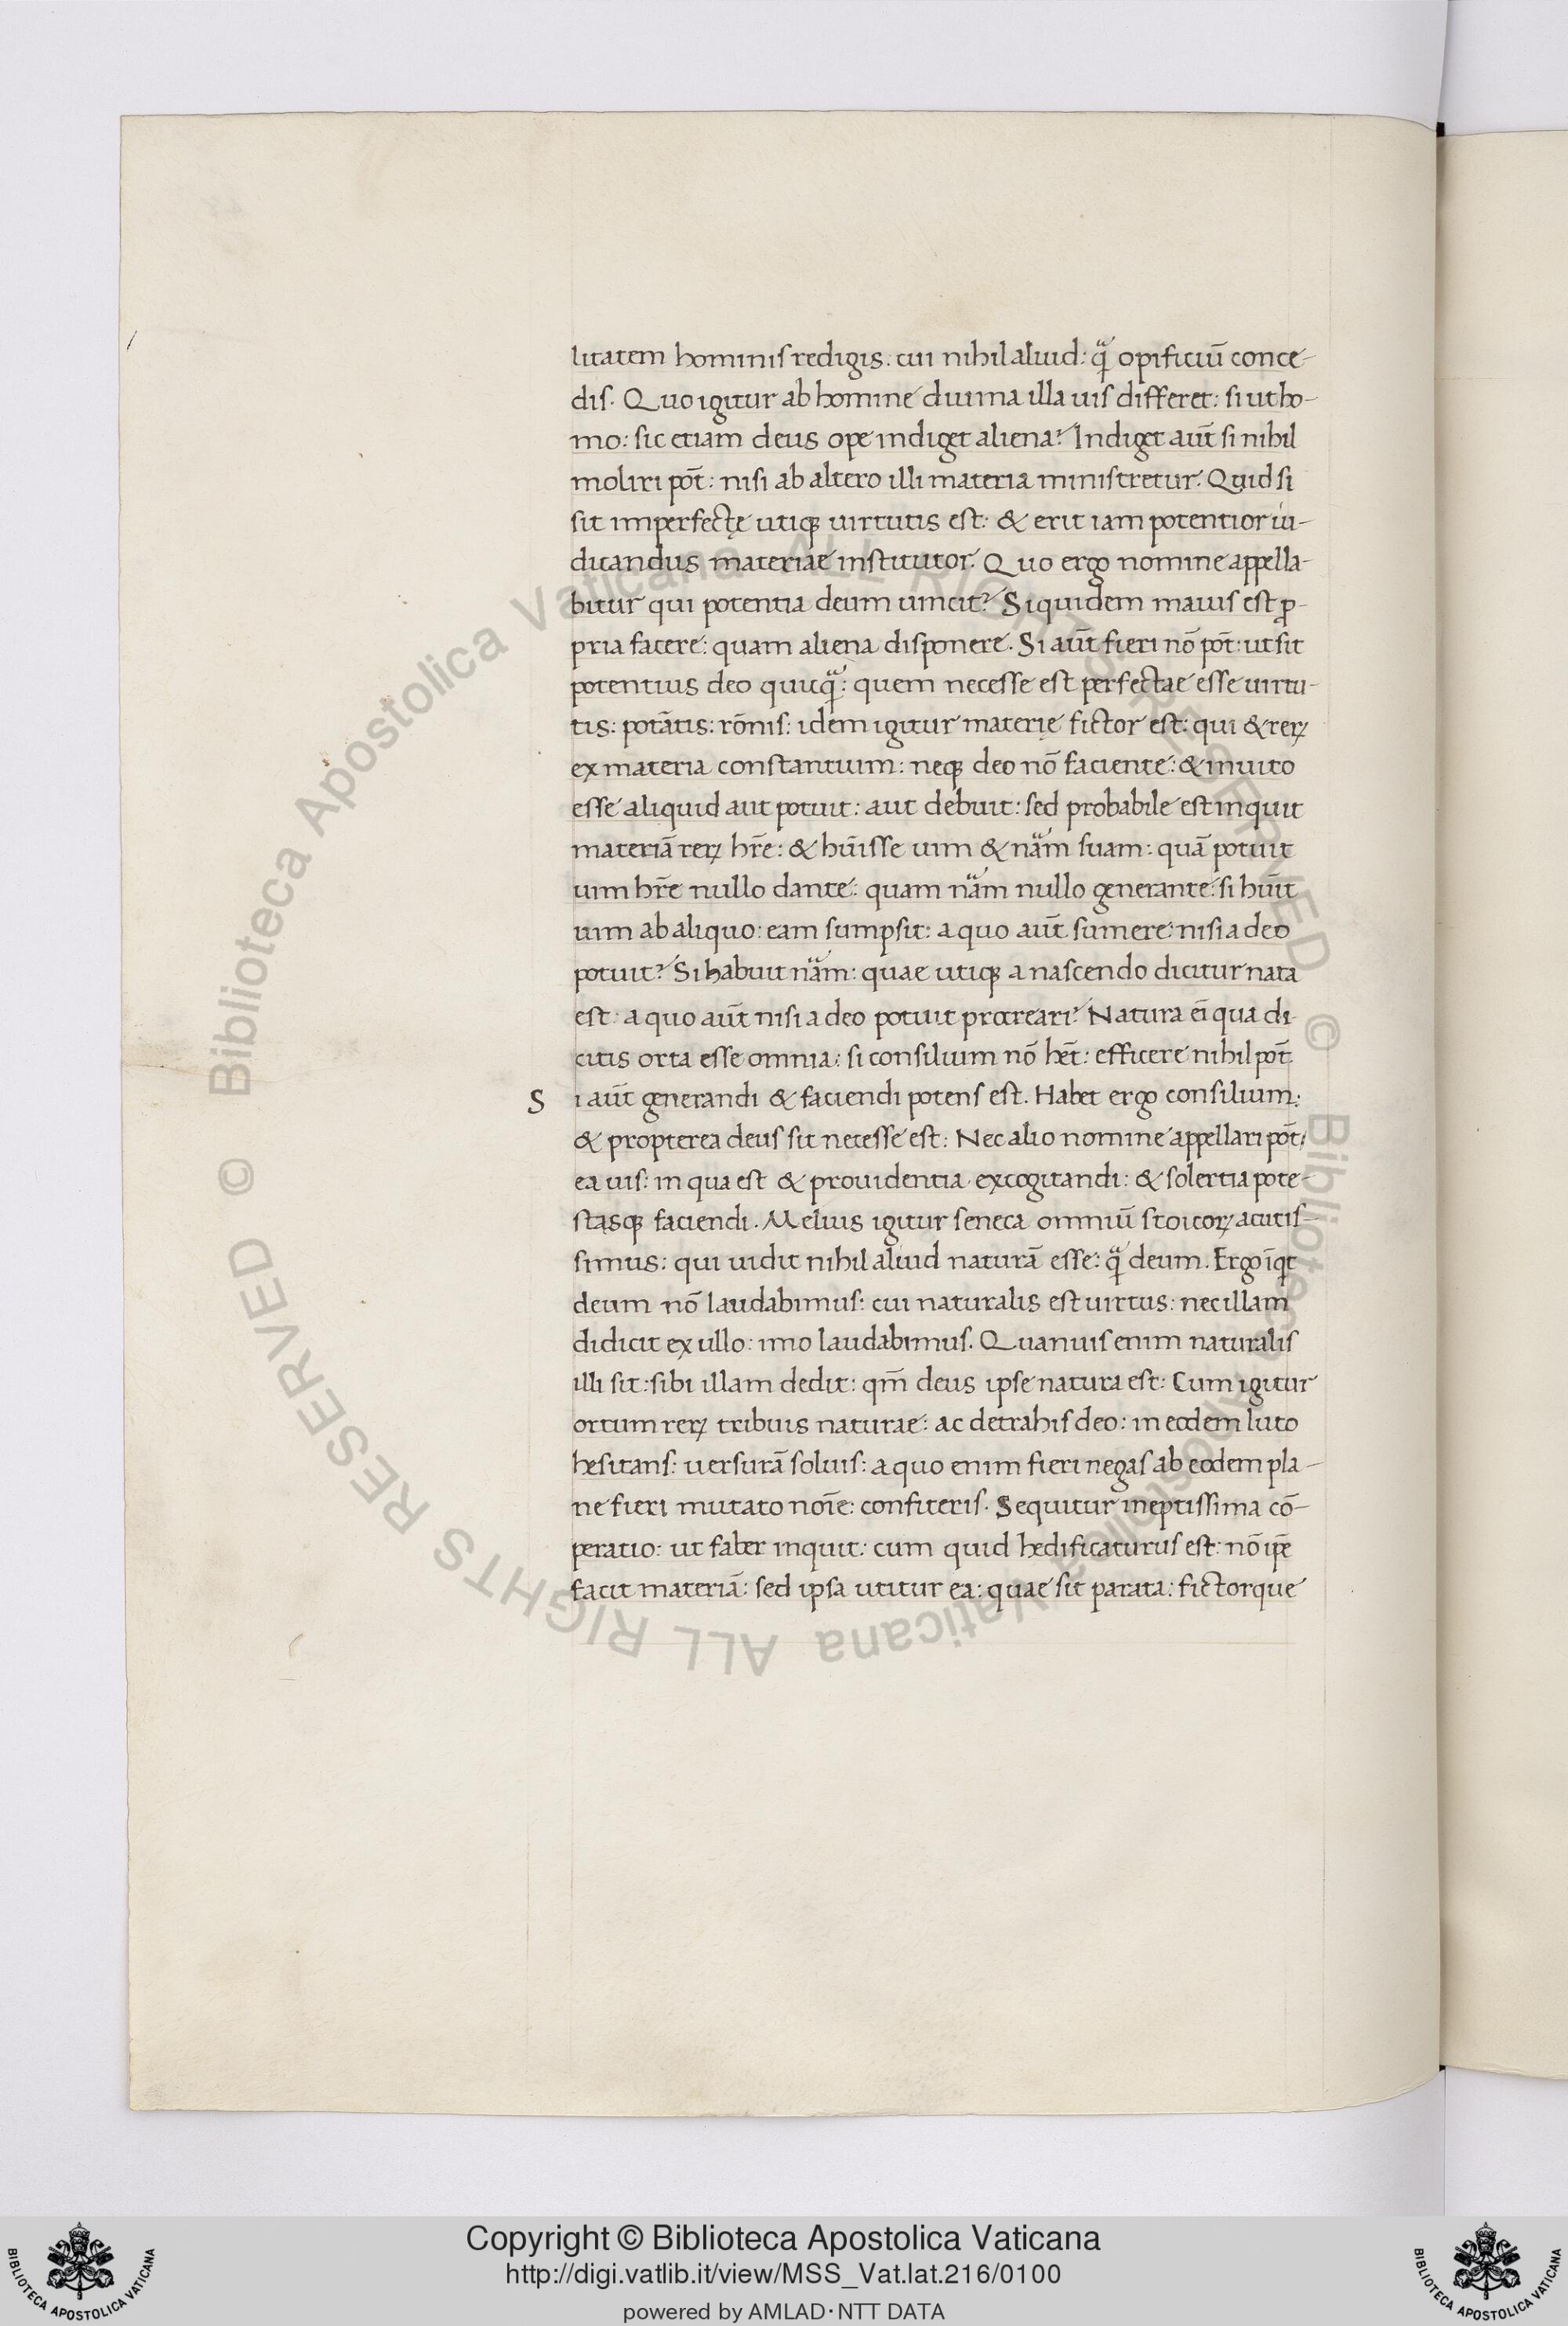 litatem hominis redigis. cui nihil aliud: q̃ opificiũ conce-
dis. Quo igitur ab homine diuina illa uis differet: si ut ho-
mo: sic etiam deus ope indiget aliena? Indiget aũt si nihil
moliri põt: nisi ab altero illi materia ministretur. Quid si
sit imperfectę utiqꝫ uirtutis est: & erit iam potentior iu-
dicandus materiae institutor. Quo ergo nomine appella-
bitur qui potentia deum uincit? Siquidem maius est ꝓ-
pria facere: quam aliena disponere. Si aũt fieri nõ põt: ut sit
potentius deo quicq̃: quem necesse est perfectae esse uirtu-
tis: potãtis: rõnis: idem igitur materię fictor est: qui & reꝝ
ex materia constantium: neqꝫ deo nõ faciente: & inuito
esse aliquid aut potuit: aut debuit: sed probabile est inquit
materiã reꝝ hr̃e: & hũisse uim & nãm suam: quã potuit
uim hr̃e nullo dante: quam nãm nullo generante: si hũit
uim ab aliquo: eam sumpsit: a quo aũt sumere: nisi a deo
potuit? Si habuit nãm: quae utiqꝫ a nascendo dicitur nata
est: a quo aũt nisi a deo potuit procreari? Natura ẽi qua di
citis orta esse omnia: si consilium nõ hẽt: efficere nihil põt
S i aũt generandi & faciendi potens est. Habet ergo consilium:
& propterea deus sit necesse est: Nec alio nomine appellari põt:
ea uis: in qua est & prouidentia excogitandi: & solertia pote-
stasqꝫ faciendi. Melius igitur seneca omniũ stoicoꝝ acutis-
simus: qui uidit nihil aliud naturã esse: q̃ deum. Ergo ĩqt
deum nõ laudabimus: cui naturalis est uirtus: nec illam
didicit ex ullo: imo laudabimus. Quanuis enim naturalis
illi sit: sibi illam dedit: qm̃ deus ipse natura est: Cum igitur
ortum reꝝ tribuis naturae: ac detrahis deo: in eodem luto
hesitans: uersurã soluis: a quo enim fieri negas ab eodem pla-
ne fieri mutato noĩe: confiteris. Sequitur ineptissima cõ-
peratio: ut faber inquit: cum quid hedificaturus est: nõ ip̃e
facit materiã: sed ipsa utitur ea: quae sit parata: fictorque
© Biblioteca Apostolica Vaticana ALL RIGHTS RESERVED © Biblioteca Apostolica Vaticana ALL RIGHTS RESERVED
BIBLIOTECA APOSTOLICA VATICANA
Copyright © Biblioteca Apostolica Vaticana
http://digi.vatlib.it/view/MSS_Vat.lat.216/0100
powered by AMLAD·NTT DATA
BIBLIOTECA APOSTOLICA VATICANA